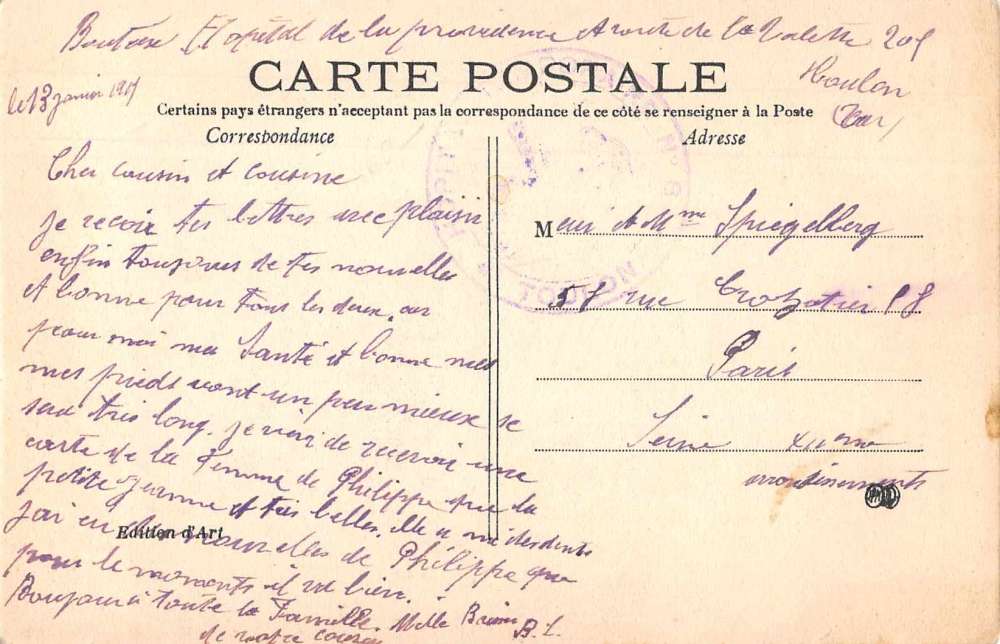 Hopital de la providence Avenue de la Valette 205
Toulon
(Var)
le 13 janvier 1915
CARTE POSTALE
Certains pays étrangers n'acceptant pas la correspondance de ce côté se renseigner à la Poste
Correspondance
Adresse
Cher cousin et cousine
je recoir tes lettres avec plaisir
enfin toujours de tes nouvelles
et bonne pour tous les deux. car
pour moi ma Santé et bonne mes
mes pieds vont un peu mieux se
sera très long. je vien de recevoir une
carte de la femme de Philippe que la
petite jeanne et très belles. elle a
j'ai eu des nouvelles de Philippe que
pour le moments il va bien.
Bonjour à toute la Famille. Mille Baisers
de votre cousin
B. L.
Edition d'Art
HOPITAL
N° 8
TOULON
M et Mme Spiegelberg
57 rue Crozatier 57
Paris
Seine XIIeme
arrondissements